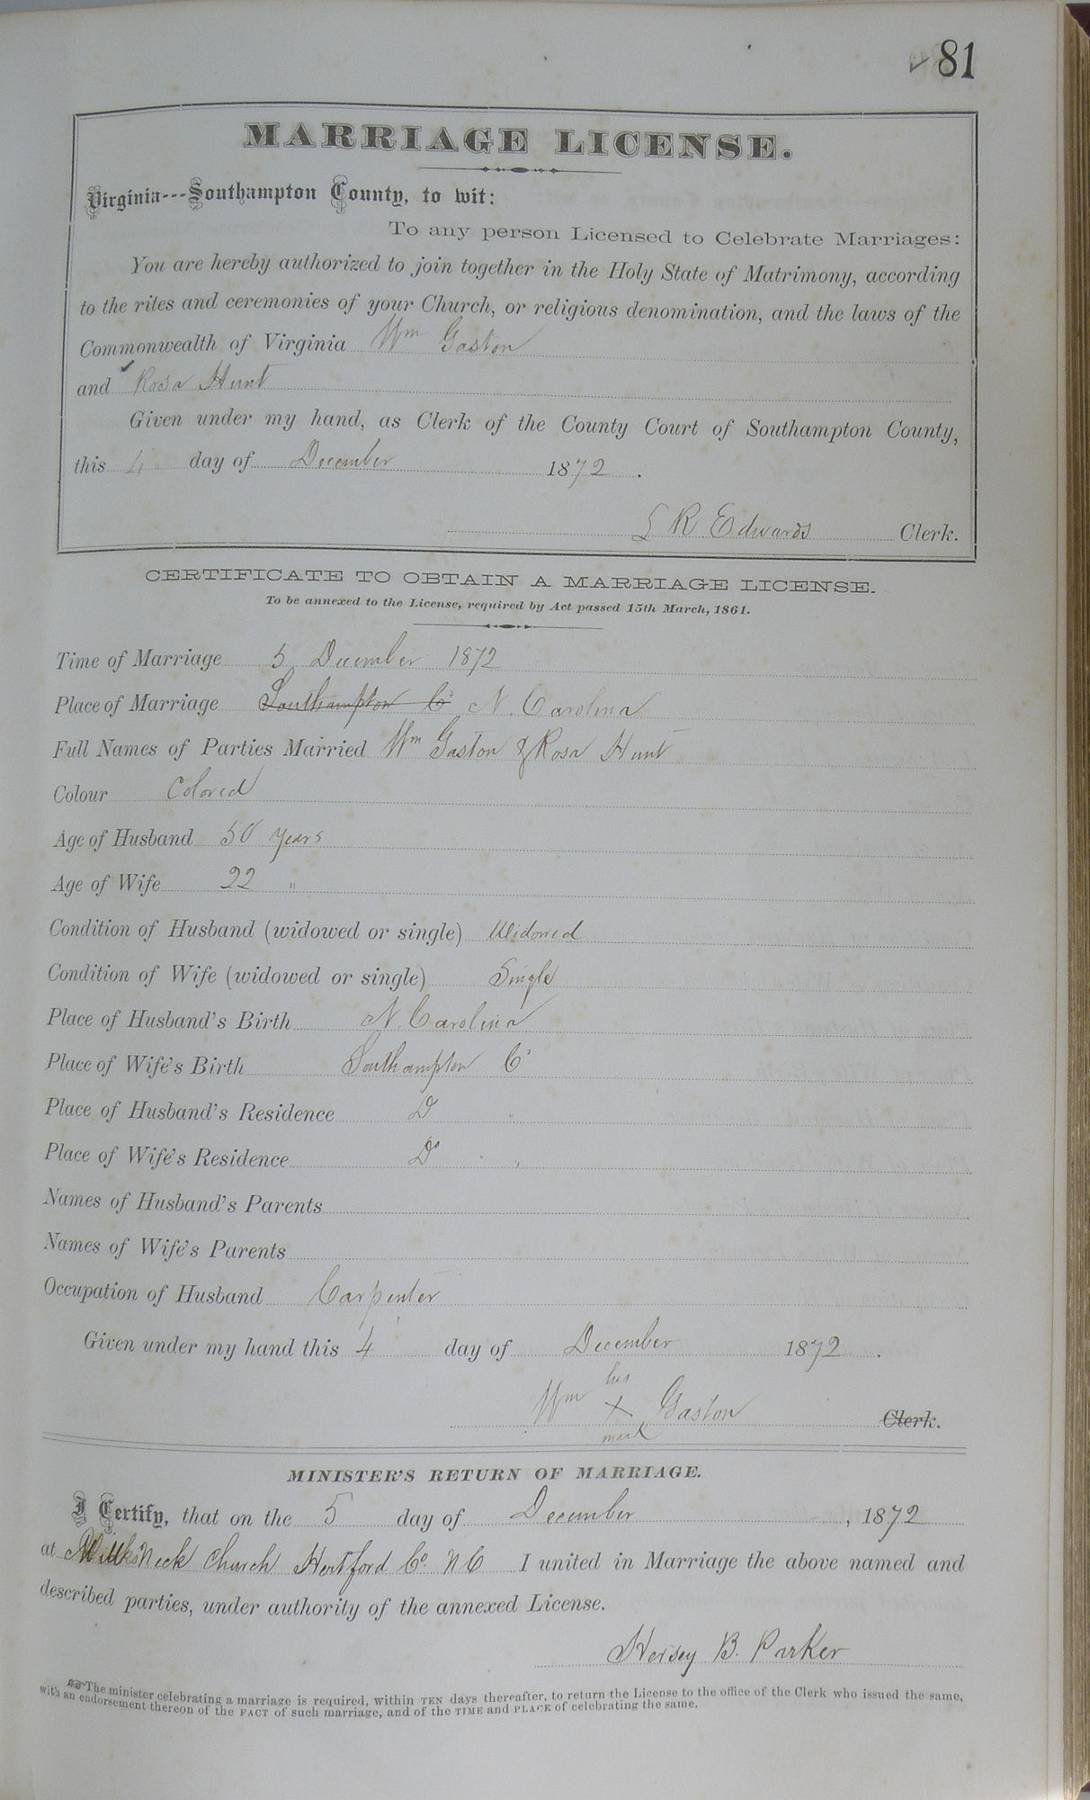 81
MARRIAGE LICENSE.
Virginia---Southampton County, to wit:
To any person Licensed to Celebrate Marriages:
You are hereby authorized to join together in the Holy State of Matrimony, according
to the rites and ceremonies of your Church, or religious denomination, and the laws of the
Commonwealth of Virginia Wm Gaston
and Rosa Hunt
Given under my hand, as Clerk of the County Court of Southampton County,
this 4 day of December 1872.
L R Edwards Clerk.
CERTIFICATE TO OBTAIN A MARRIAGE LICENSE.
To be annexed to the License, required by Act passed 15th March, 1861.
Time of Marriage 5 December 1872
Place of Marriage Southampton Co N. Carolina
Full Names of Parties Married Wm Gaston & Rosa Hunt
Colour Colored
Age of Husband 50 years
Age of Wife 22 "
Condition of Husband (widowed or single) Widowed
Condition of Wife (widowed or single) Single
Place of Husband's Birth N. Carolina
Place of Wife's Birth Southampton Co
Place of Husband's Residence Do
Place of Wife's Residence Do
Names of Husband's Parents
Names of Wife's Parents
Occupation of Husband Carpenter
Given under my hand this 4 day of December 1872.
his
Wm X Gaston Clerk.
mark
MINISTER'S RETURN OF MARRIAGE.
I Certify, that on the 5 day of December, 1872
at Neck Church Hertford Co. N C I united in Marriage the above named and
described parties, under authority of the annexed License.
Hersey B. Parker
The minister celebrating a marriage is required, within TEN days thereafter, to return the License to the office of the Clerk who issued the same,
with an endorsement thereon of the FACT of such marriage, and of the TIME and PLACE of celebrating the same.